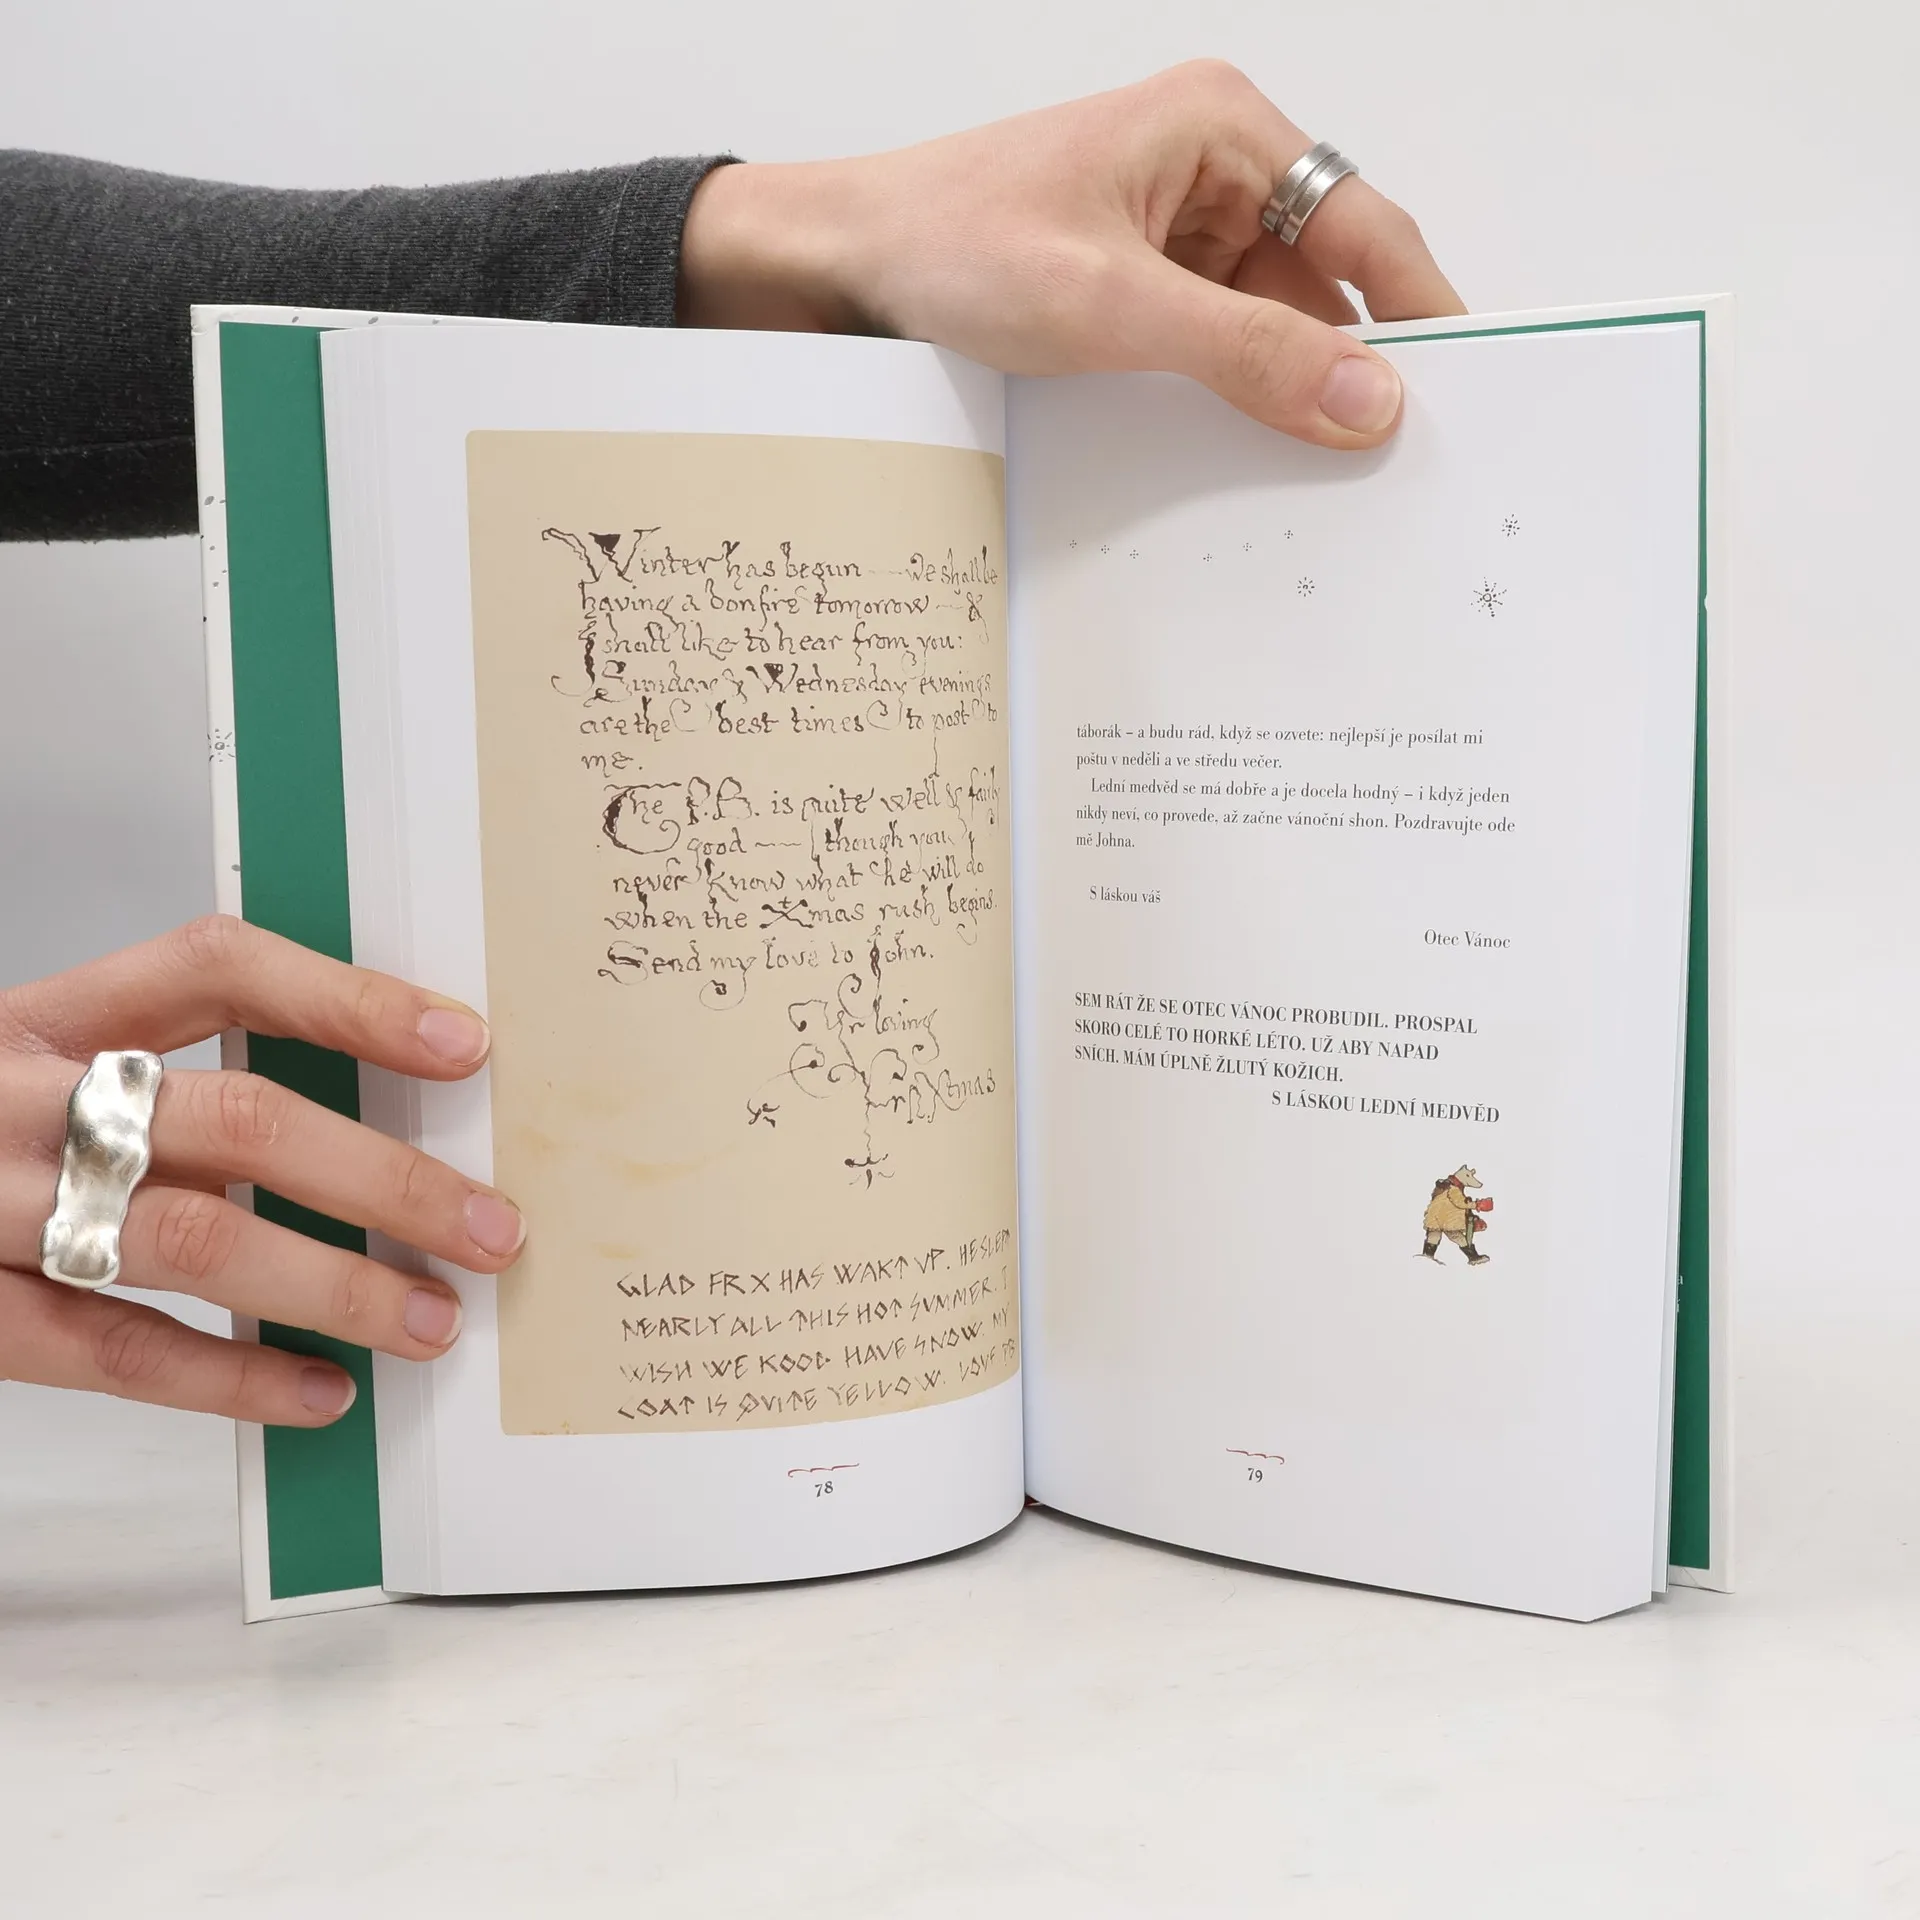 Winter has begun — we shall be
having a bonfire tomorrow — &
I shall like to hear from you:
Sunday & Wednesday evenings
are the best times to post to
me.
The P.B. is quite well & fairly
good — though you
never know what he will do
when the Xmas rush begins.
Send my love to John.
Yr loving
Fr. Xtmas
GLAD FR X HAS WAKT UP. HE SLEPT
NEARLY ALL THIS HOT SUMMER. I
WISH WE KOOD HAVE SNOW. MY
COAT IS QUITE YELLOW. LOVE PB
78
táborák – a budu rád, když se ozvete: nejlepší je posílat mi
poštu v neděli a ve středu večer.
Lední medvěd se má dobře a je docela hodný – i když jeden
nikdy neví, co provede, až začne vánoční shon. Pozdravujte ode
mě Johna.
S láskou váš
Otec Vánoc
SEM RÁT ŽE SE OTEC VÁNOC PROBUDIL. PROSPAL
SKORO CELÉ TO HORKÉ LÉTO. UŽ ABY NAPAD
SNÍCH. MÁM ÚPLNĚ ŽLUTÝ KOŽICH.
S LÁSKOU LEDNÍ MEDVĚD
79